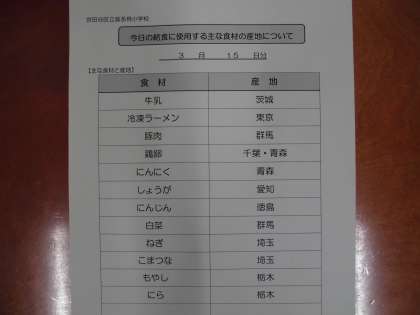 世田谷区立喜多見小学校
今日の給食に使用する主な食材の産地について
3 月 15 日分
【主な食材と産地】
食 材 産 地
牛乳 茨城
冷凍ラーメン 東京
豚肉 群馬
鶏卵 千葉・青森
にんにく 青森
しょうが 愛知
にんじん 徳島
白菜 群馬
ねぎ 埼玉
こまつな 埼玉
もやし 栃木
にら 栃木